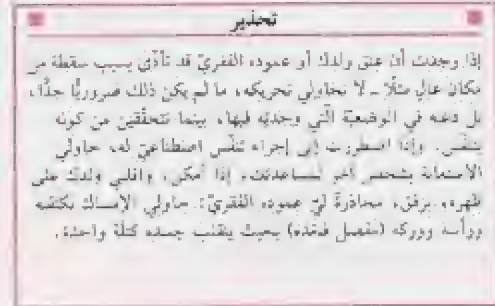 تحذير
إذا وجدت أن عنق ولدك أو عموده الفقريّ قد تأذّى بسبب سقطة من
مكان عالٍ مثلًا ـ لا تحاولي تحريكه، ما لم يكن ذلك ضروريًّا جدًّا،
بل دعيه في الوضعيّة الّتي وجدتِه فيها، بينما تتحقّقين من كونه
يتنفّس. وإذا اضطررت إلى إجراء تنفّس اصطناعيّ له، حاولي
الاستعانة بشخص آخر لمساعدتك، إذا أمكن، واقلبي ولدك على
ظهره، برفق، محاذرةً ليّ عموده الفقريّ: حاولي الإمساك بكتفيه
ورأسه ووركه (مفصل فخذه) بحيث ينقلب جسده كتلة واحدة.